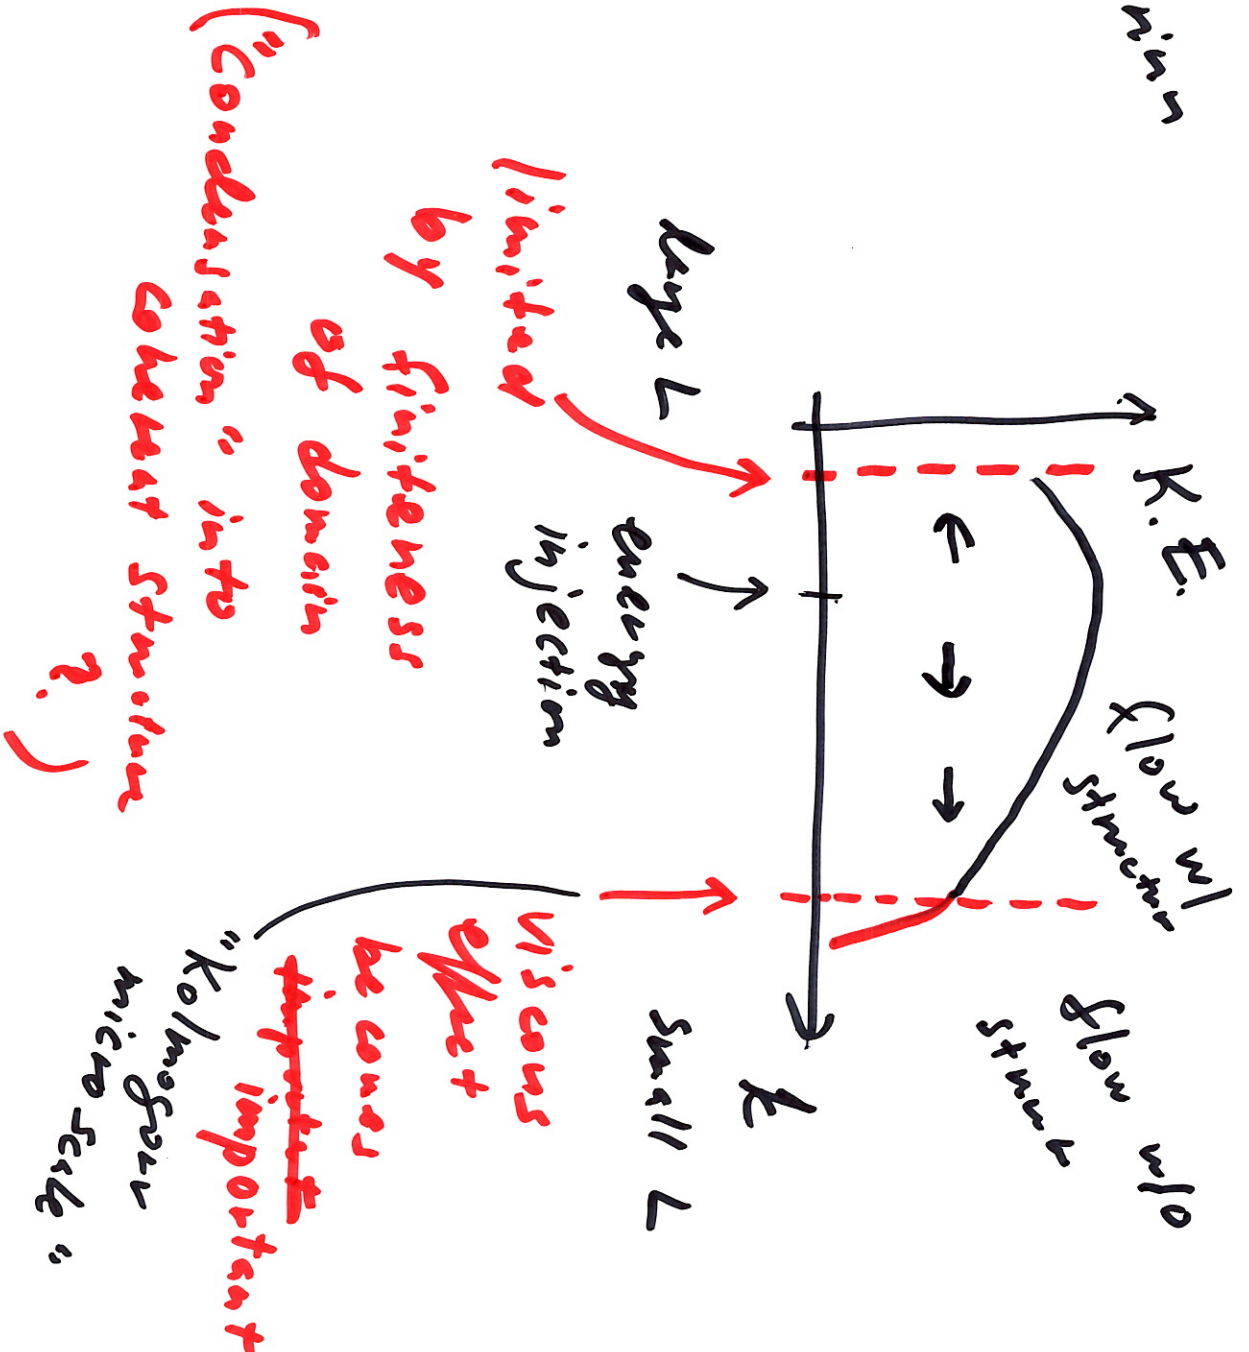 K.E.
flow w/
structur
flow w/o
struct
k
large L
small L
energy
injection
limited
by finiteness
of domain
("Condensation" into
coherent structure
?)
viscous
effect
becomes
important
"Kolmogorov
microscale"